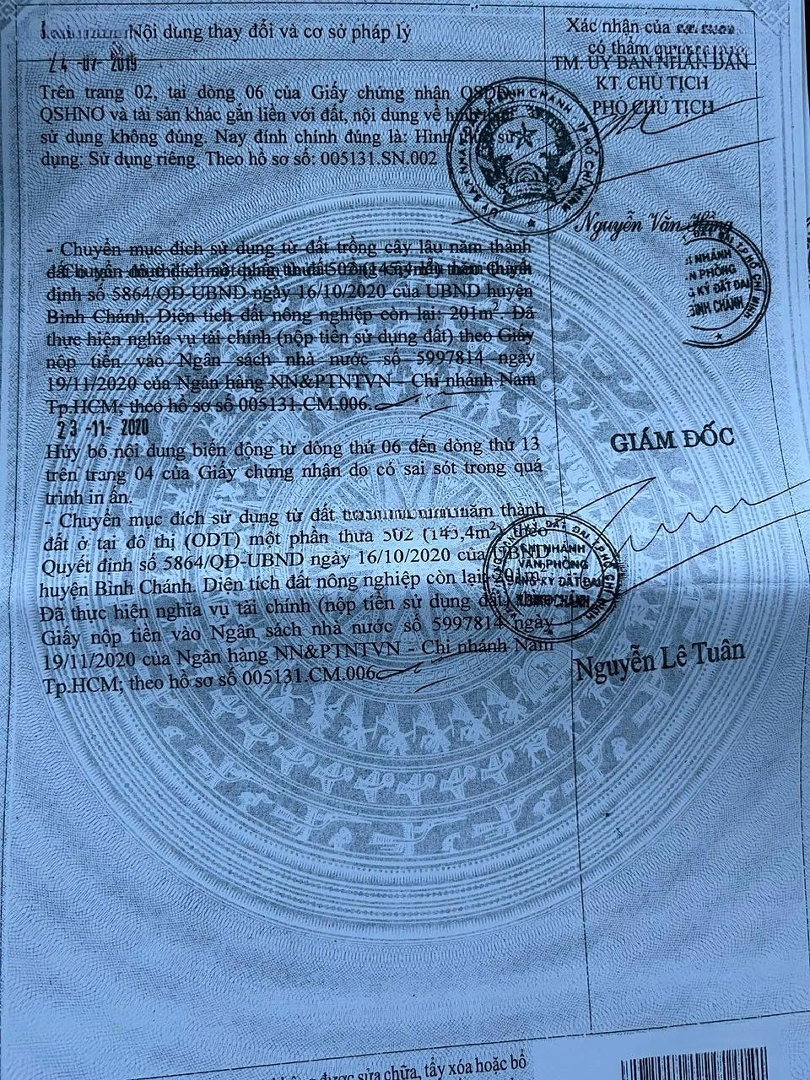 Nội dung thay đổi và cơ sở pháp lý
Xác nhận của
có thẩm
24 -07- 2019
TM. ỦY BAN NHÂN DÂN
KT. CHỦ TỊCH
PHÓ CHỦ TỊCH
Trên trang 02, tại dòng 06 của Giấy chứng nhận
QSHNO và tài sản khác gắn liền với đất, nội dung về
sử dụng không đúng. Nay đính chính đúng là: Hình
dụng: Sử dụng riêng. Theo hồ sơ số: 005131.SN.002
Nguyễn Văn
- Chuyển mục đích sử dụng từ đất trồng cây lâu năm thành
định số 5864/QĐ-UBND ngày 16/10/2020 của UBND huyện
Bình Chánh. Diện tích đất nông nghiệp còn lại: 201m². Đã
thực hiện nghĩa vụ tài chính (nộp tiền sử dụng đất) theo Giấy
nộp tiền vào Ngân sách nhà nước số 5997814 ngày
19/11/2020 của Ngân hàng NN&PTNTVN - Chi nhánh Nam
Tp.HCM; theo hồ sơ số 005131.CM.006.
23 -11- 2020
GIÁM ĐỐC
Hủy bỏ nội dung biến động từ dòng thứ 06 đến dòng thứ 13
trên trang 04 của Giấy chứng nhận do có sai sót trong quá
trình in ấn.
- Chuyển mục đích sử dụng từ đất năm thành
đất ở tại đô thị (ODT) một phần thửa 502 (143,4m²) theo
Quyết định số 5864/QĐ-UBND ngày 16/10/2020 của UBND
huyện Bình Chánh. Diện tích đất nông nghiệp còn lại
Đã thực hiện nghĩa vụ tài chính (nộp tiền sử dụng
Giấy nộp tiền vào Ngân sách nhà nước số 5997814 ngày
19/11/2020 của Ngân hàng NN&PTNTVN - Chi nhánh Nam
Tp.HCM; theo hồ sơ số 005131.CM.006
Nguyễn Lê Tuân
được sửa chữa, tẩy xóa hoặc bổ